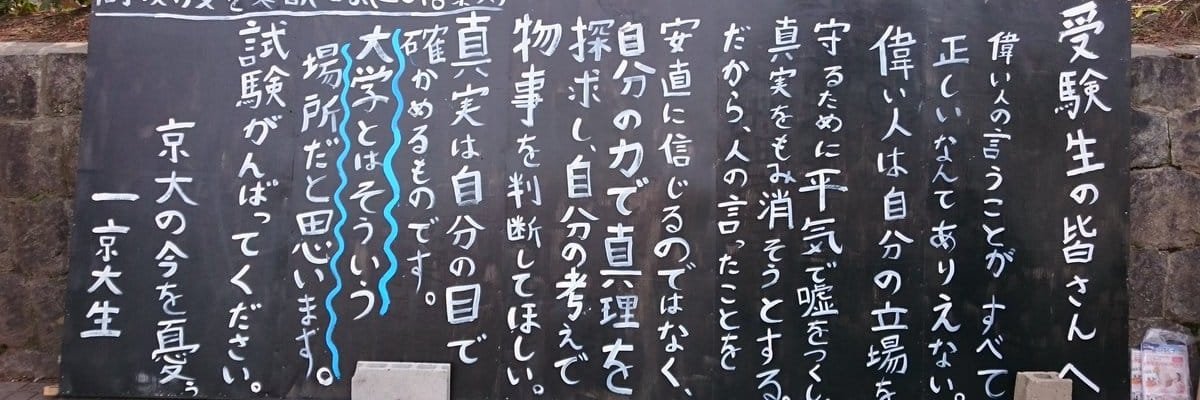 受験生の皆さんへ
偉い人の言うことがすべて
正しいなんてありえない。
偉い人は自分の立場を
守るために平気で嘘をつくし、
真実をもみ消そうとする。
だから、人の言ったことを
安直に信じるのではなく、
自分の力で真理を
探求し、自分の考えで
物事を判断してほしい。
真実は自分の目で
確かめるものです。
大学とはそういう
場所だと思います。
試験がんばってください。
京大の今を憂う
一京大生